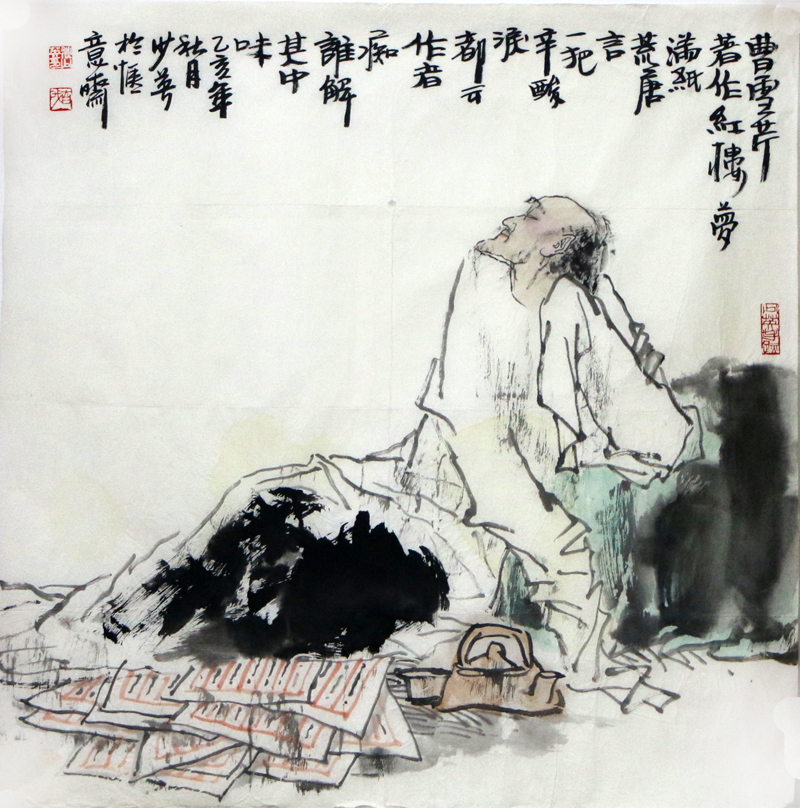 曹雪芹
著作紅樓夢
滿紙
荒唐
言
一把
辛酸
淚
都云
作者
痴
誰解
其中
味
乙亥年
秋月
少
於愜
意齋